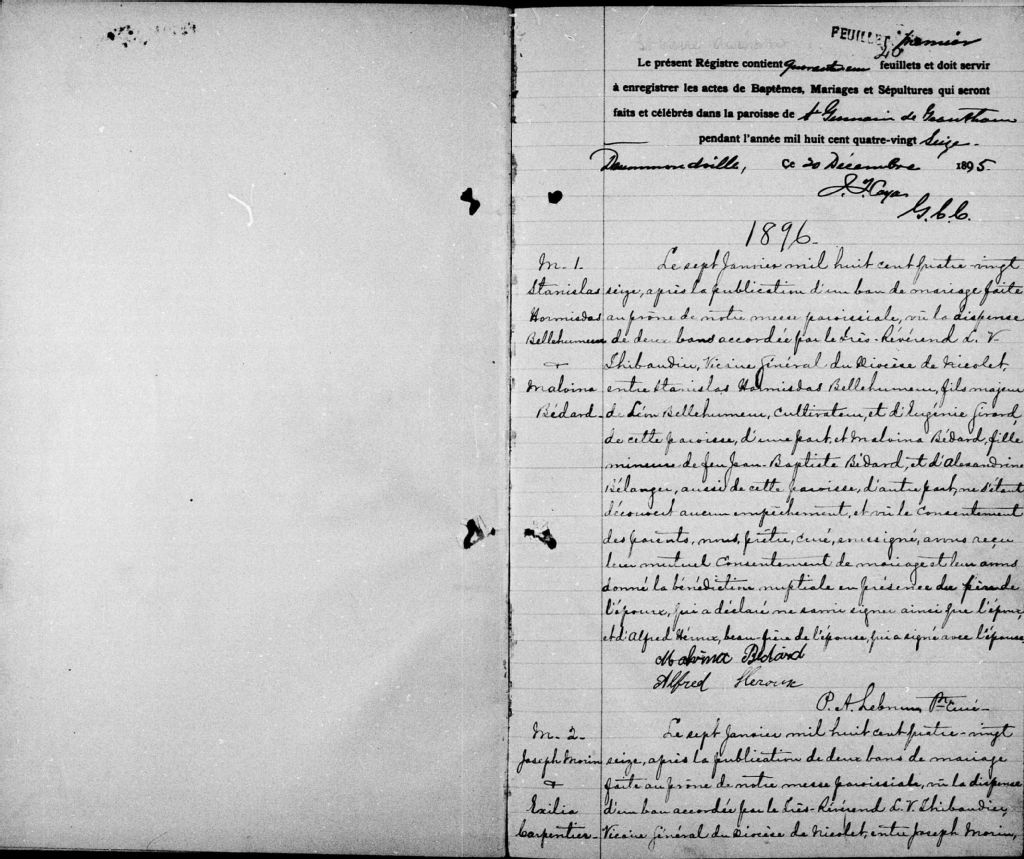 FEUILLET premier
Le présent Régistre contient feuillets et doit servir
à enregistrer les actes de Baptêmes, Mariages et Sépultures qui seront
faits et célébrés dans la paroisse de St Germain de Grantham
pendant l'année mil huit cent quatre-vingt Seize.
Drummondville, Ce 20 Décembre 1895.
G.C.C.
1896.
M. 1.
Stanislas
Hormisdas
Bellehumeur
&
Malvina
Bédard
Le sept Janvier mil huit cent quatre-vingt
seize, après la publication d'un ban de mariage faite
au prône de notre messe paroissiale, vû la dispense
de deux bans accordée par le très-Révérend L. V.
Thibaudier, Vicaire Général du Diocèse de Nicolet,
entre Stanislas Hormisdas Bellehumeur, fils majeur
de Léon Bellehumeur, cultivateur, et d'Eugénie Girard,
de cette paroisse, d'une part, et Malvina Bédard, fille
mineure de feu Jean-Baptiste Bédard, et d'Alexandrine
Bélanger, aussi de cette paroisse, d'autre part, ne s'étant
découvert aucun empêchement, et vû le consentement
des parents, nous, prêtre, curé, soussigné, avons reçu
leur mutuel consentement de mariage et leur avons
donné la bénédiction nuptiale en présence du père de
l'époux, qui a déclaré ne savoir signer ainsi que l'époux,
et d'Alfred Héroux, beau-frère de l'épouse, qui a signé avec l'épouse
Malvina Bédard
Alfred Heroux
P. A. Lebrun Ptre Curé-
M. 2.
Joseph Morin
&
Exilia
Carpentier-
Le sept Janvier mil huit cent quatre-vingt
seize, après la publication de deux bans de mariage
faite au prône de notre messe paroissiale, vû la dispense
d'un ban accordée par le très-Révérend L. V. Thibaudier,
Vicaire Général du Diocèse de Nicolet, entre Joseph Morin,